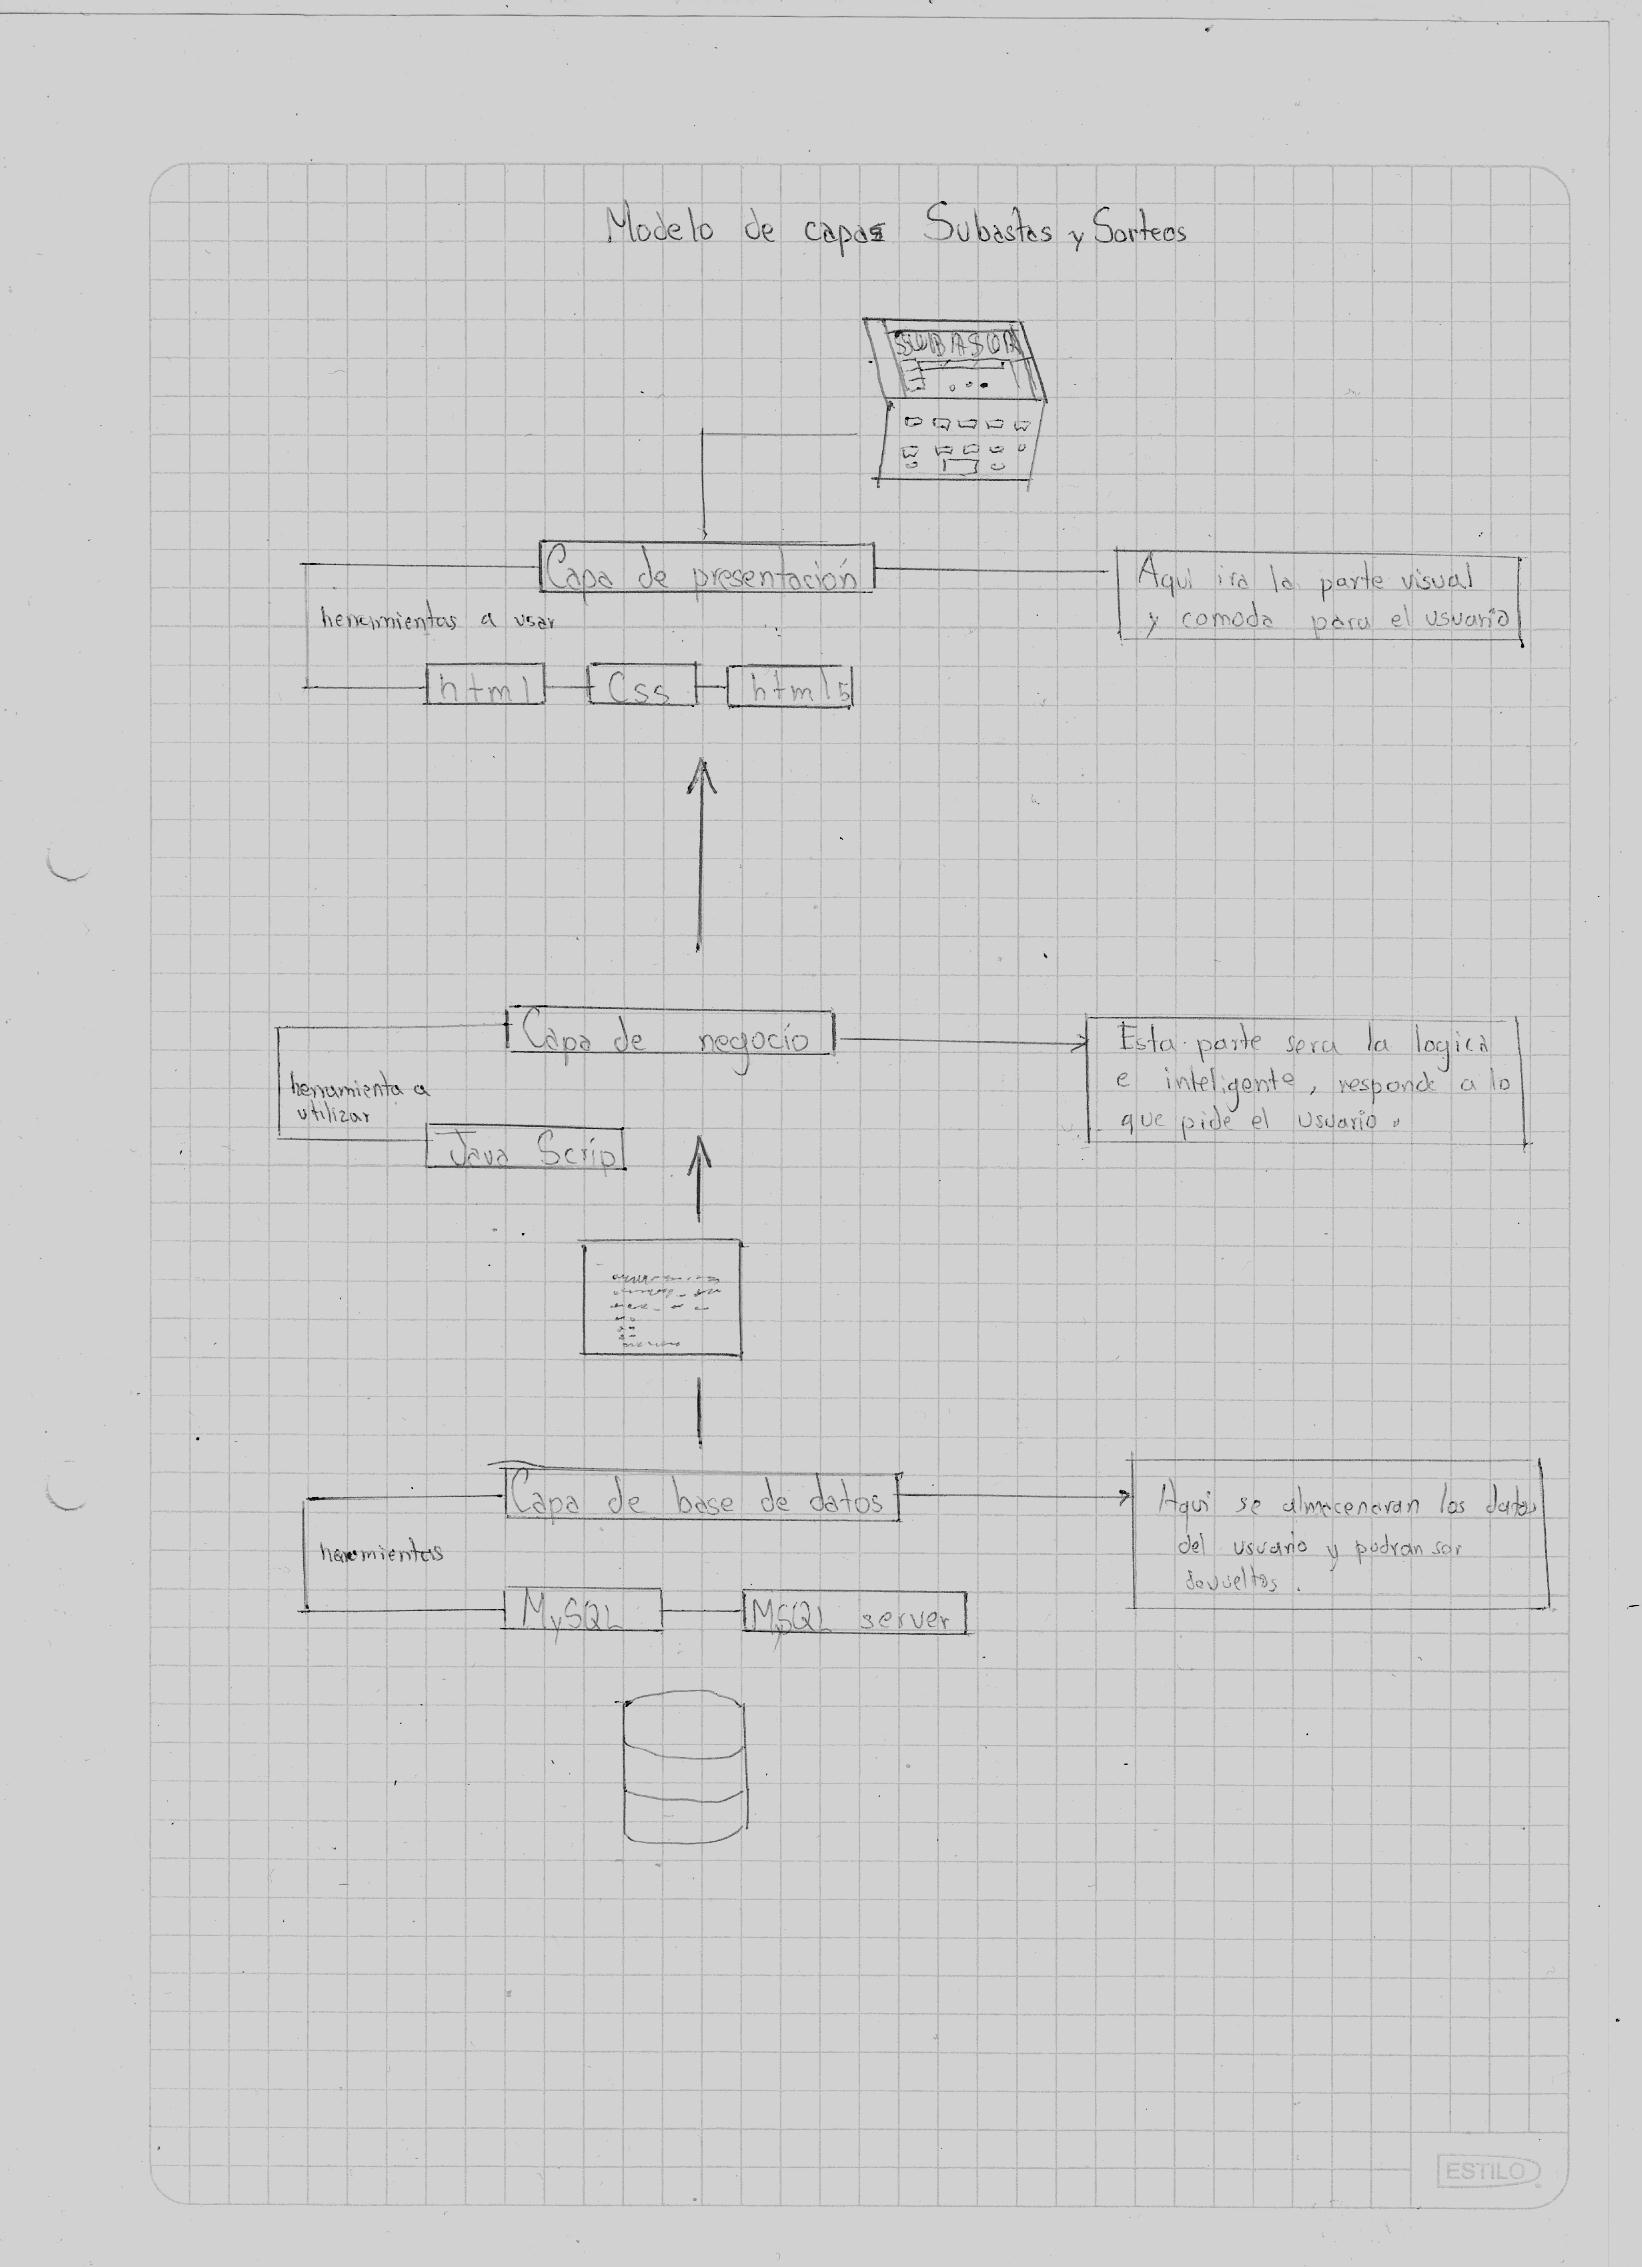 Modelo de capas Subastas y Sorteos
Capa de presentación
Aqui ira la parte visual
y comoda para el usuario
herramientas a usar
html
Css
html5
Capa de negocio
Esta parte sera la logica
e inteligente, responde a lo
que pide el usuario.
herramienta a
utilizar
Java Scrip
Capa de base de datos
Aqui se almacenaran los datos
del usuario y podran ser
devueltos.
herramientas
MySQL
MySQL server
ESTILO